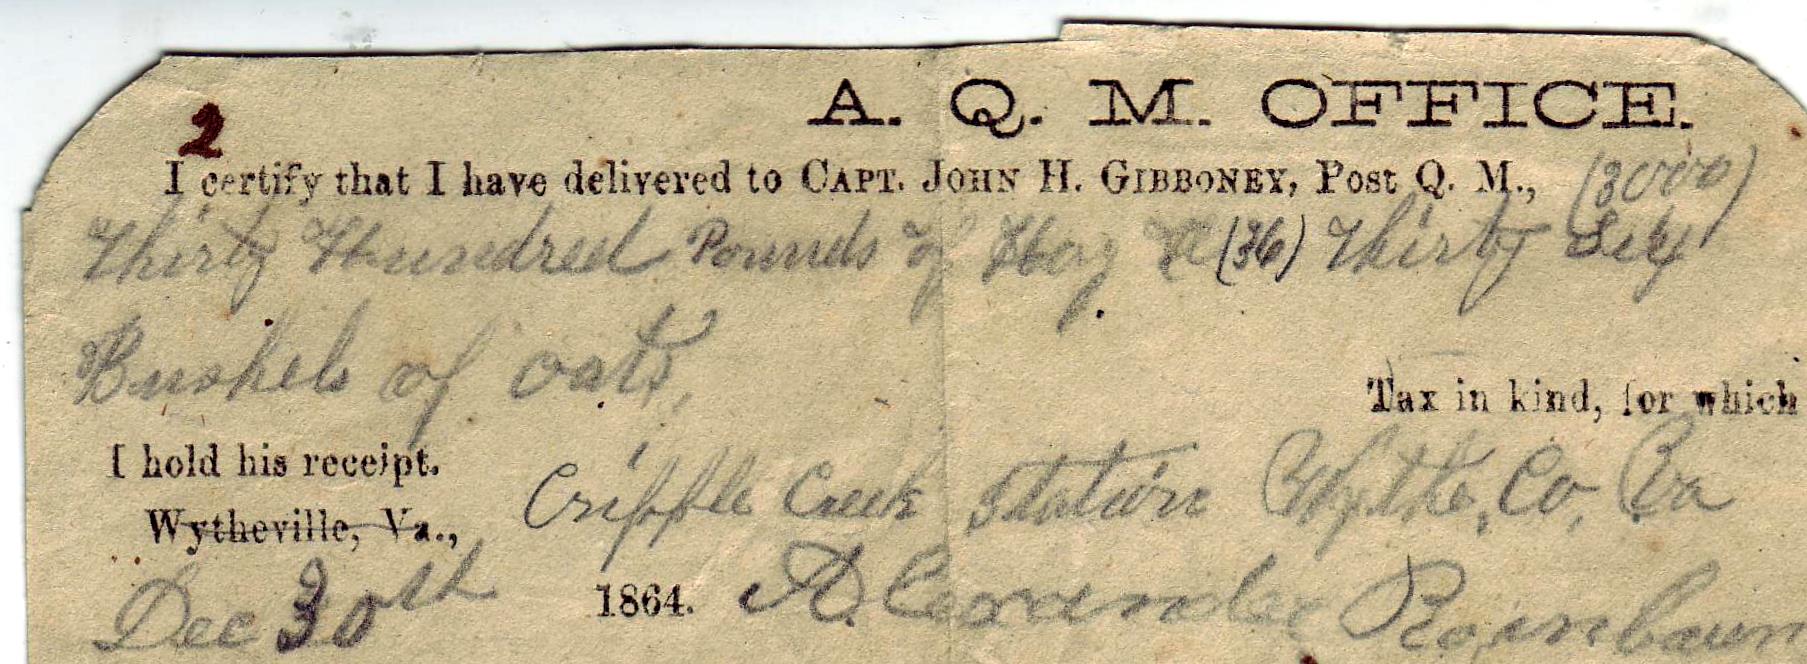 A. Q. M. OFFICE.
2
I certify that I have delivered to CAPT. JOHN H. GIBBONEY, Post Q. M., (3000)
Thirty Hundred Pounds of Hay & (36) Thirty Six
Bushels of oats,
Tax in kind, for which
I hold his receipt.
Wytheville, Va., Cripple Creek Station Wythe, Co, Va
Dec 30th 1864. Alexander